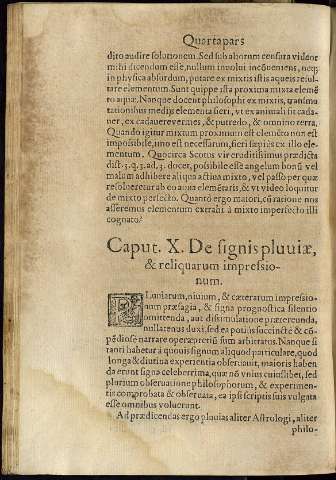 Quarta pars
dito audire solutionem. Sed sub aliorum censura videtur
mihi dicendum esse, nullum involui incõueniens, neq;
in physica absurdum, putare ex mixtis istis aqueis resultare
elementum. Sunt quippe ista proxima mixta elemẽ
to aquæ. Nanque docent philosophi ex mixtis, transmu
tationibus medijs elementa fieri, vt ex animali fit cada-
uer, ex cadauere vermes, & putredo, & omnino terra.
Quando igitur mixtum proximum est elemẽto non est
impossibile, imo est necessarium, fieri sæpius ex illo ele-
mentum. Quocirca Scotus vir eruditissimus prædicta
dist. 3. q. 3. ad. 3. docet, possibile esse angelum bonũ vel
malum adhibere aliqua actiua mixto, vel passo per quæ
resolueretur ab eo aqua elemẽtaris, & vt video loquitur
de mixto perfecto. Quanto ergo maiori, cũ ratione nos
asseremus elementum exerahi à mixto imperfecto illi
cognato?
Caput. X. De signis pluuiæ,
& reliquarum impressio-
num.
PLuuiarum, niuium, & cæterarum impressio-
num præsagia, & signa prognostica silentio
omittenda, aut dissimulatione prætereunda,
nullatenus duxi, sed ea potius succincte & cõ-
pẽdiose narrare operæpretiũ sum arbitratus. Nanque si
ratori habetur à quouis signum aliquod particulare, quod
longa & diutina experientia obseruauit, maioris haben
da erunt signa celeberrima, quæ nõ vnius cuiuslibet, sed
plurium obseruatione philosophorum, & experimen-
tis comprobata & obseruata, ea ipsi scriptis suis vulgata
esse omnibus voluerunt.
Ad prædicendas ergo pluuias aliter Astrologi, aliter
philo-